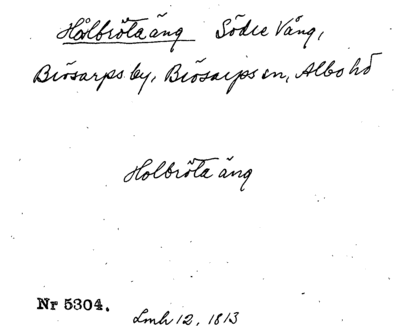 Hålbröta äng Södre Vång,
Brösarps by, Brösarps sn, Albo hd
Holbröta äng
Nr 5304.
Lmh 12, 1813